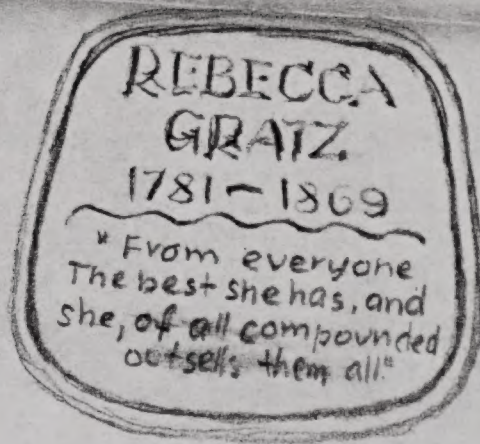 REBECCA
GRATZ
1781 – 1869
"From everyone
The best she has, and
she, of all compounded
outsells them all."